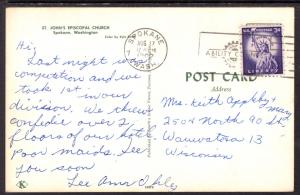 ST. JOHN'S EPISCOPAL CHURCH
Spokane, Washington
Color by
SPOKANE
AUG 17
WASH
ABILITY
U.S. POSTAGE 3¢
LIBERTY
POST CARD
Address
Hi,
Last night was
competition and we
took 1st in our
division. We threw
confedie over 2
floors of our hotel
poor maids. See
you soon
Lee Ann
Mrs. Keith Appleby
Mary
2504 North 90 St.
Wauwatosa 13
Wisconsin
K